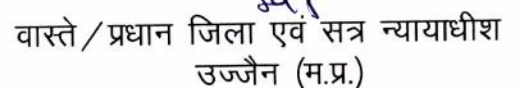 वास्ते/प्रधान जिला एवं सत्र न्यायाधीश
उज्जैन (म.प्र.)